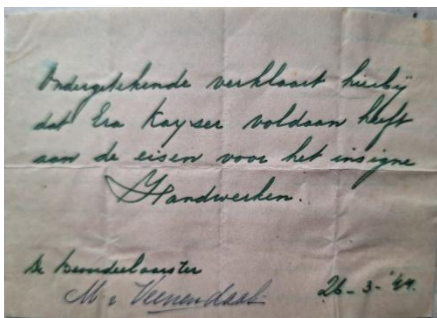 Ondergetekende verklaart hierbij
dat Era Kayser voldaan heeft
aan de eisen voor het insigne
Handwerken.
De beoordeelaarster
M. v Veenendaal
26-3-'44.